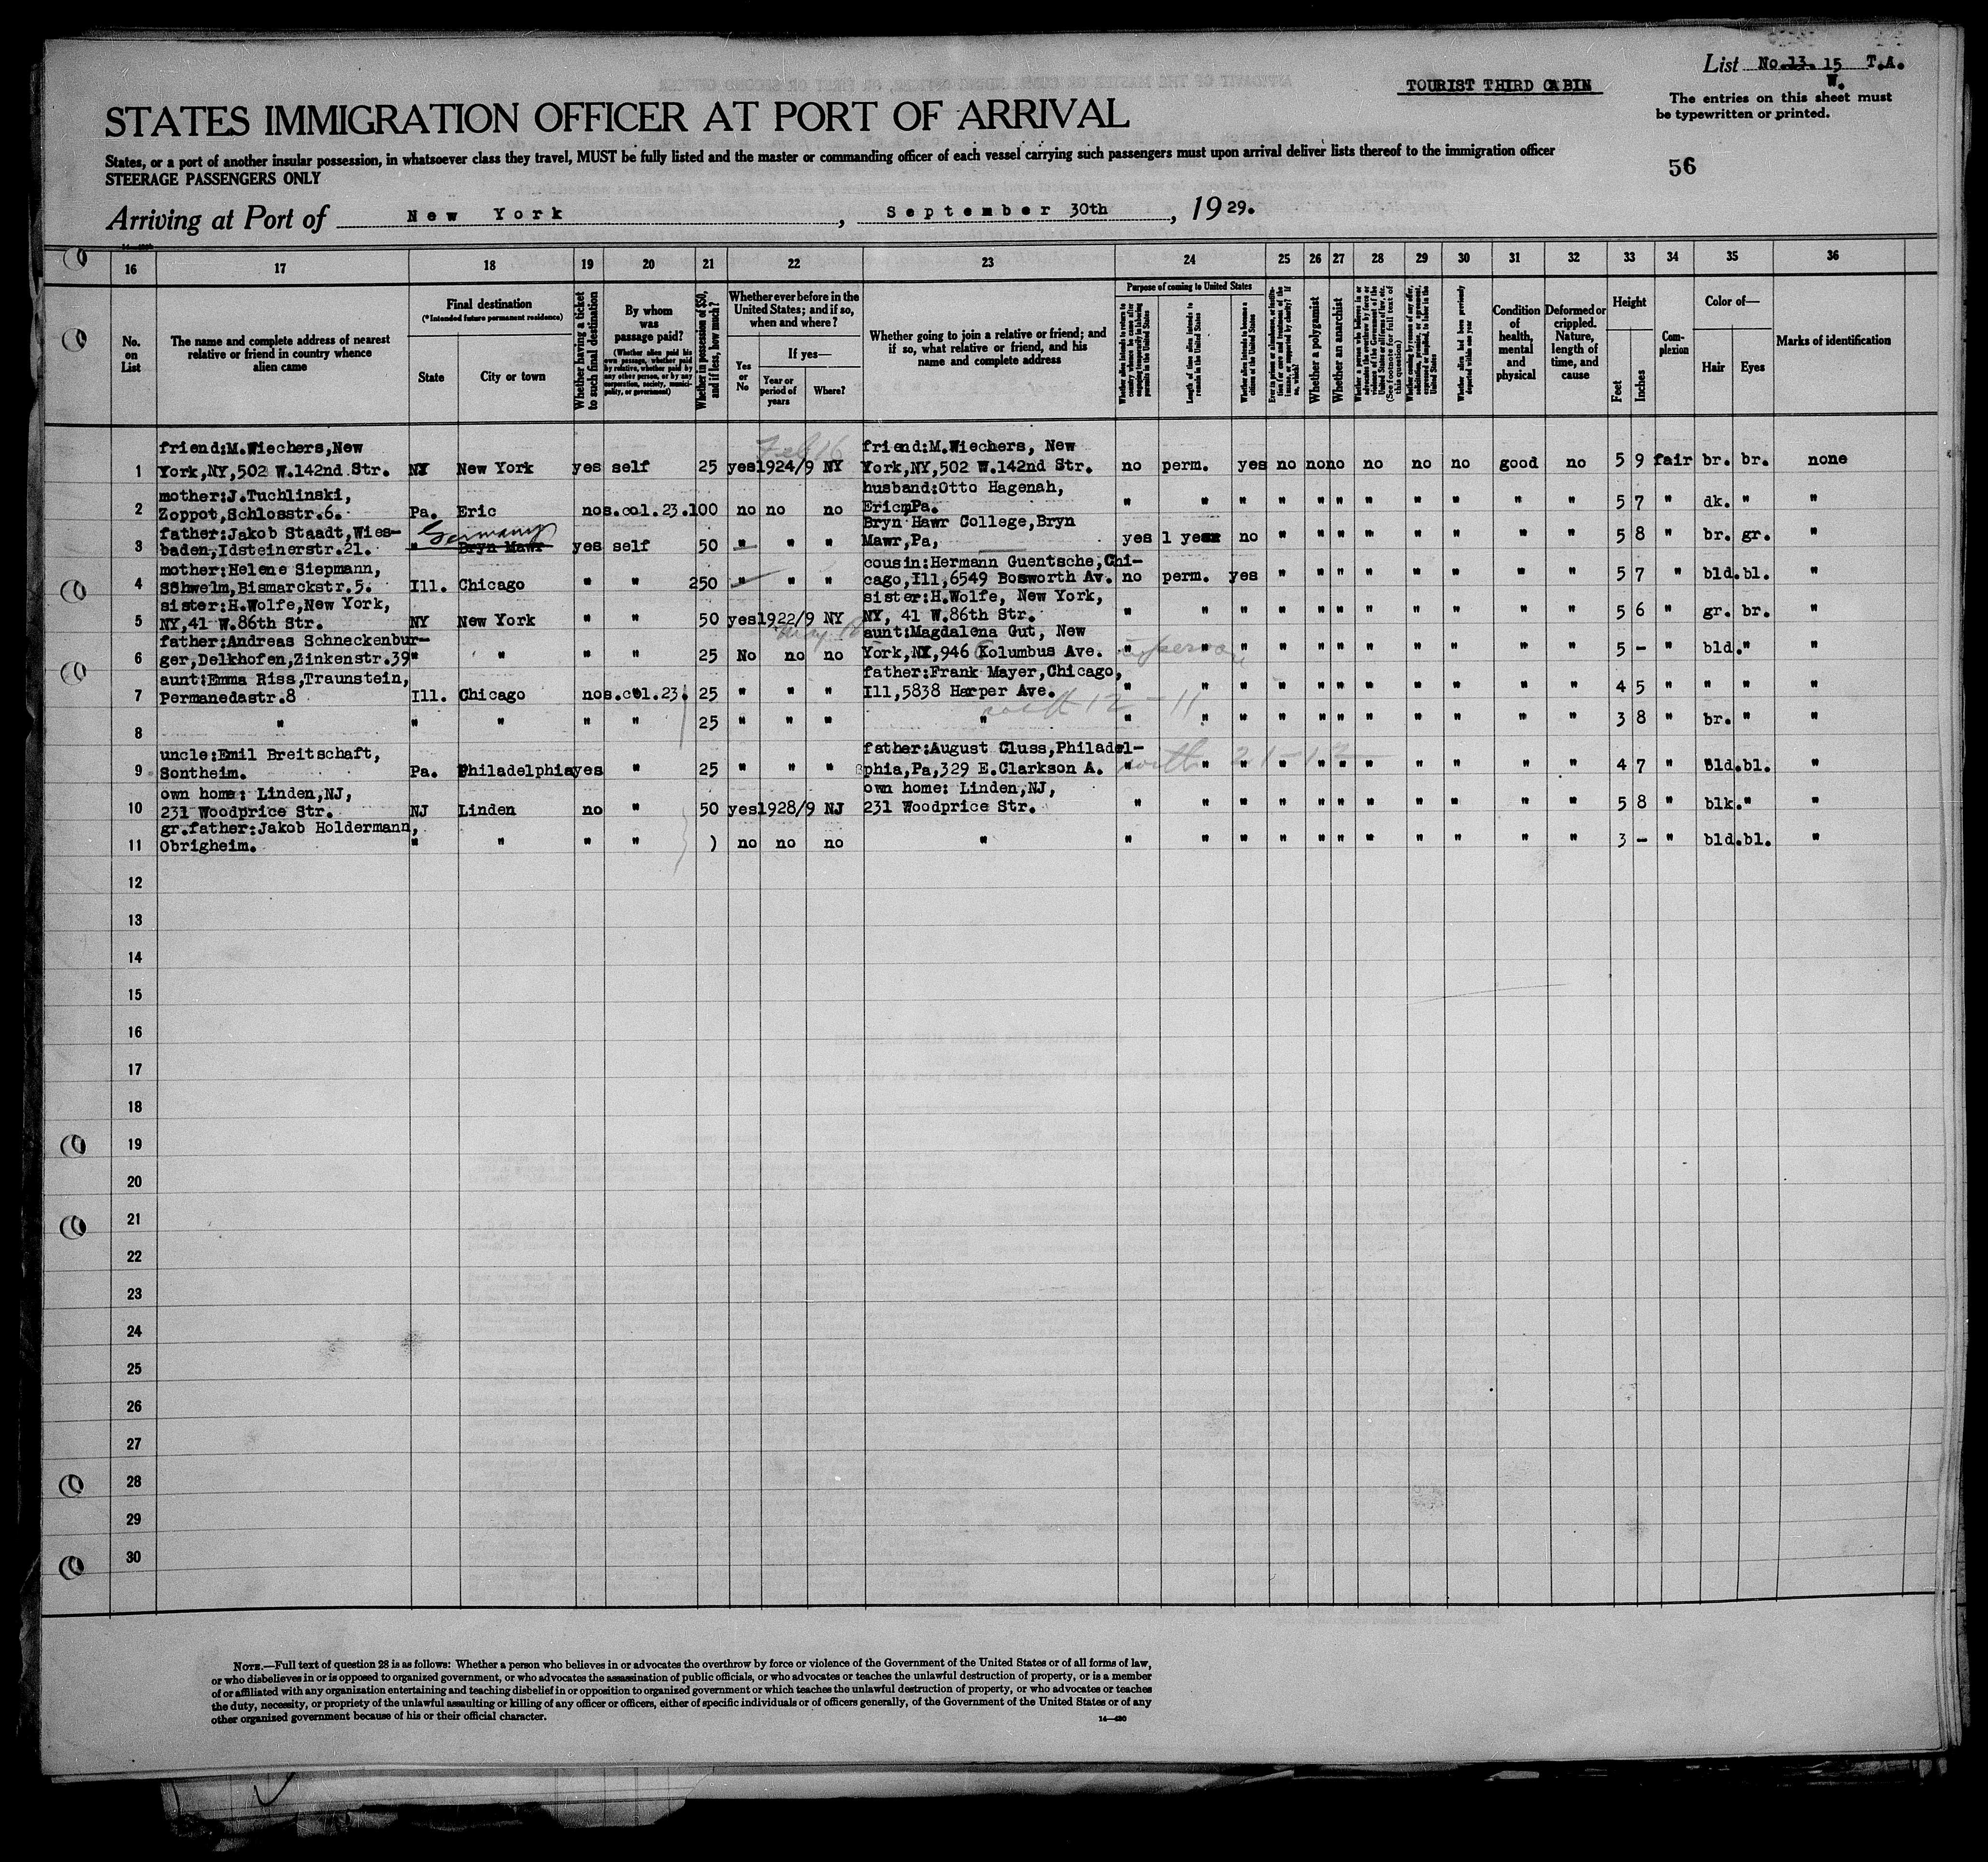 List No. 13. 15 T.A.
W.
TOURIST THIRD CABIN
The entries on this sheet must
be typewritten or printed.
STATES IMMIGRATION OFFICER AT PORT OF ARRIVAL
States, or a port of another insular possession, in whatsoever class they travel, MUST be fully listed and the master or commanding officer of each vessel carrying such passengers must upon arrival deliver lists thereof to the immigration officer
STEERAGE PASSENGERS ONLY
56
Arriving at Port of New York, September 30th, 1929.
16 17 18 19 20 21 22 23 24 25 26 27 28 29 30 31 32 33 34 35 36
No. on List
The name and complete address of nearest relative or friend in country whence alien came
Final destination
(*Intended future permanent residence)
State
City or town
Whether having a ticket to such final destination
By whom was passage paid?
(Whether alien paid his own passage, whether paid by relative, whether paid by any other person, or by any corporation, society, municipality, or government)
Whether in possession of $50, and if less, how much?
Whether ever before in the United States; and if so, when and where?
Yes or No
If yes—
Year or period of years
Where?
Whether going to join a relative or friend; and if so, what relative or friend, and his name and complete address
Purpose of coming to United States
Length of time alien intends to remain in the United States
Whether alien intends to become a citizen of the United States
Whether a polygamist
Whether an anarchist
(See footnote for full text of this question)
Whether alien had been previously deported within one year
Condition of health, mental and physical
Deformed or crippled. Nature, length of time, and cause
Height
Feet
Inches
Complexion
Color of—
Hair
Eyes
Marks of identification
Feb 16
friend:M.Wiechers,New friend:M.Wiechers, New
1 York,NY,502 W.142nd Str. NY New York yes self 25 yes 1924/9 NY York,NY,502 W.142nd Str. no perm. yes no no no no no no good no 5 9 fair br. br. none
mother:J.Tuchlinski, husband:Otto Hagenah,
2 Zoppot,Schlosstr.6. Pa. Eric no s.col.23. 100 no no no Eric,Pa. " " " " " " " " " " " 5 7 " dk. " "
father:Jakob Staadt,Wies- Germany Bryn Hawr College,Bryn
3 baden,Idsteinerstr.21. " Bryn Mawr yes self 50 " " " Mawr,Pa, yes 1 year no " " " " " " " " 5 8 " br. gr. "
mother:Helene Siepmann, cousin:Hermann Guentsche,Chi-
4 Schwelm,Bismarckstr.5. Ill. Chicago " " 250 " " " cago,Ill,6549 Bosworth Av. no perm. yes " " " " " " " " 5 7 " bld. bl. "
sister:H.Wolfe,New York, sister:H.Wolfe, New York,
5 NY,41 W.86th Str. NY New York " " 50 yes 1922/9 NY NY, 41 W.86th Str. " " " " " " " " " " " 5 6 " gr. br. "
father:Andreas Schneckenbur- aunt:Magdalena Gut, New
6 ger,Delkhofen,Zinkenstr.39 " " " " 25 No no no York,NY,946 Kolumbus Ave. " " " " " " " " " " " 5 - " bld. " "
aunt:Emma Riss,Traunstein, father:Frank Mayer,Chicago,
7 Permanedastr.8 Ill. Chicago no s.col.23. 25 " " " Ill,5838 Harper Ave. " " " " " " " " " " " 4 5 " " " "
with 12-11
8 " " " " " 25 " " " " " " " " " " " " " " " 3 8 " br. " "
uncle:Emil Breitschaft, father:August Cluss,Philadel-
9 Sontheim. Pa. Philadelphia yes " 25 " " " phia,Pa,329 E.Clarkson A. " " " " " " " " " " " 4 7 " bld. bl. "
own home: Linden,NJ, own home: Linden,NJ,
10 231 Woodprice Str. NJ Linden no " 50 yes 1928/9 NJ 231 Woodprice Str. " " " " " " " " " " " 5 8 " blk. " "
gr.father:Jakob Holdermann,
11 Obrigheim. " " " " ) no no no " " " " " " " " " " " " 3 - " bld. bl. "
12
13
14
15
16
17
18
19
20
21
22
23
24
25
26
27
28
29
30
NOTE.—Full text of question 28 is as follows: Whether a person who believes in or advocates the overthrow by force or violence of the Government of the United States or of all forms of law,
or who disbelieves in or is opposed to organized government, or who advocates the assassination of public officials, or who advocates or teaches the unlawful destruction of property, or is a member
of or affiliated with any organization entertaining and teaching disbelief in or opposition to organized government or which teaches the unlawful destruction of property, or who advocates or teaches
the duty, necessity, or propriety of the unlawful assaulting or killing of any officer or officers, either of specific individuals or of officers generally, of the Government of the United States or of any
other organized government because of his or their official character.
14—430